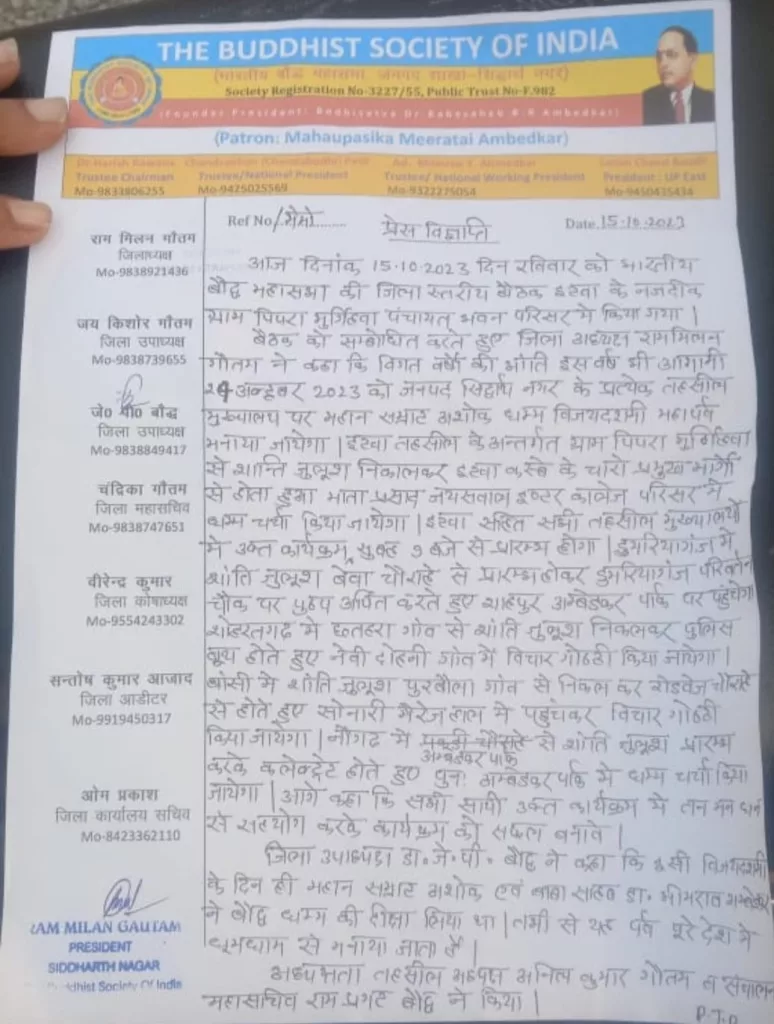 THE BUDDHIST SOCIETY OF INDIA
(भारतीय बौद्ध महासभा जनपद शाखा-सिद्धार्थ नगर)
Society Registration No-3227/55, Public Trust No-F.982
(Founder President: Bodhisatva Dr Babasaheb B R Ambedkar)
(Patron: Mahaupasika Meeratai Ambedkar)
Trustee Chairman
Mo-9833806255
Trustee/National President
Mo-9425025569
Trustee/ National Working President
Mo-9322275054
President : UP East
Mo-9450435434
राम मिलन गौतम
जिलाध्यक्ष
Mo-9838921436
जय किशोर गौतम
जिला उपाध्यक्ष
Mo-9838739655
जे० पी० बौद्ध
जिला उपाध्यक्ष
Mo-9838849417
चंद्रिका गौतम
जिला महासचिव
Mo-9838747651
वीरेन्द्र कुमार
जिला कोषाध्यक्ष
Mo-9554243302
सन्तोष कुमार आजाद
जिला आडीटर
Mo-9919450317
ओम प्रकाश
जिला कार्यालय सचिव
Mo-8423362110
RAM MILAN GAUTAM
PRESIDENT
SIDDHARTH NAGAR
Buddhist Society Of India
Ref No/मेमो....... प्रेस विज्ञप्ति Date.15.10.2023
आज दिनांक 15.10.2023 दिन रविवार को भारतीय
बौद्ध महासभा की जिला स्तरीय बैठक इटवा के नजदीक
ग्राम पिपरा मुर्गिहवा पंचायत भवन परिसर में किया गया |
बैठक को सम्बोधित करते हुए जिला अध्यक्ष राममिलन
गौतम ने कहा कि विगत वर्षों की भांति इस वर्ष भी आगामी
24 अक्टूबर 2023 को जनपद सिद्धार्थ नगर के प्रत्येक तहसील
मुख्यालय पर महान सम्राट अशोक धम्म विजयदशमी महापर्व
मनाया जायेगा | इटवा तहसील के अन्तर्गत ग्राम पिपरा मुर्गिहवा
से शान्ति जुलूश निकालकर इटवा कस्बे के चारो प्रमुख मार्गो
से होता हुआ माता प्रसाद जयसवाल इण्टर कालेज परिसर में
धम्म चर्चा किया जायेगा | इटवा सहित सभी तहसील मुख्यालयों
मे उक्त कार्यक्रम सुबह 9 बजे से प्रारम्भ होगा | डुमरियागंज में
शांति जुलूश बेवा चौराहे से प्रारम्भ होकर डुमरियागंज
चौक पर पुष्प अर्पित करते हुए शाहपुर अम्बेडकर पार्क पर पहुंचेगा
शोहरतगढ मे छतहरा गांव से शांति जुलूश निकलकर पुलिस
बूथ होते हुए नेबी दोहनी गांव में विचार गोष्ठी किया जायेगा |
बांसी मे शांति जुलूश पुरबौला गांव से निकल कर रोडवेज चौराहे
से होते हुए सोनारी मैरेज हाल मे पहुंचकर विचार गोष्ठी
किया जायेगा | नौगढ मे अम्बेडकर पार्क से शांति जुलूश प्रारम्भ
करके कलेक्ट्रेट होते हुए पुनः अम्बेडकर पार्क मे धम्म चर्चा किया
जायेगा | आगे कहा कि सभी साथी उक्त कार्यक्रम मे तन मन धन
से सहयोग करके कार्यक्रम को सफल बनावे |
जिला उपाध्यक्ष डा. जे. पी. बौद्ध ने कहा कि इसी विजयदशमी
के दिन ही महान सम्राट अशोक एवं बाबा साहिब डा. भीमराव अम्बेडकर
ने बौद्ध धम्म की दीक्षा लिया था | तभी से यह पर्व पूरे देश मे
धूमधाम से मनाया जाता है |
अध्यक्षता तहसील अध्यक्ष अनिल कुमार गौतम व संचालन
महासचिव राम प्रगट बौद्ध ने किया |
P.T.O